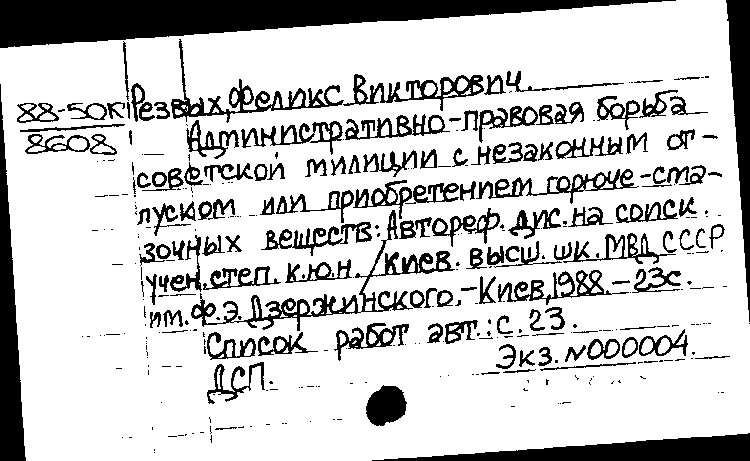 88-50к
8608
Резвых, Феликс Викторович.
Административно-правовая борьба
советской милиции с незаконным от-
пуском или приобретением горюче-сма-
зочных веществ: Автореф. дис. на соиск.
учен. степ. к.ю.н. / Киев. высш. шк. МВД СССР
им. Ф.Э. Дзержинского. - Киев, 1988. - 23с.
Список работ авт.: с. 23.
Экз. N000004.
ДСП.